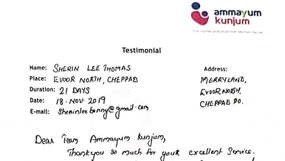 ammayum
kunjum
Testimonial
Name: SHERIN LEE THOMAS
Address:
Place: EVOOR NORTH, CHEPPAD
MERRYLAND,
Duration: 21 DAYS
EVOOR NORTH,
Date: 18. NOV. 2019
CHEPPAD PO.
E-mail:
Dear Team Ammayum Kunjum,
Thankyou so much for your excellent Service.